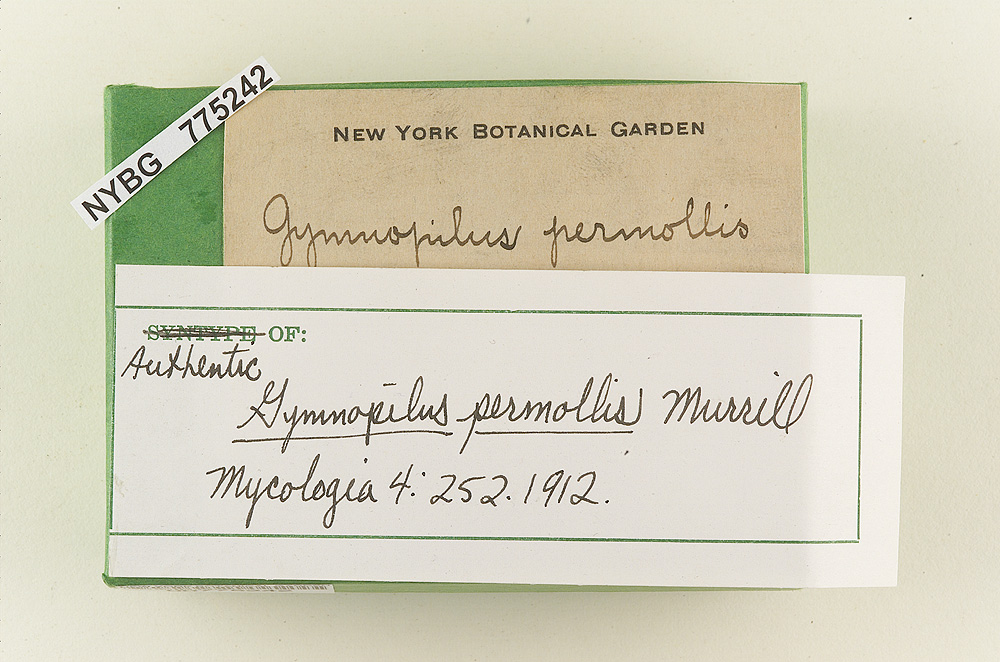 NYBG 775242
NEW YORK BOTANICAL GARDEN
Gymnopilus permollis
SYNTYPE OF:
Authentic
Gymnopilus permollis Murrill
Mycologia 4: 252. 1912.